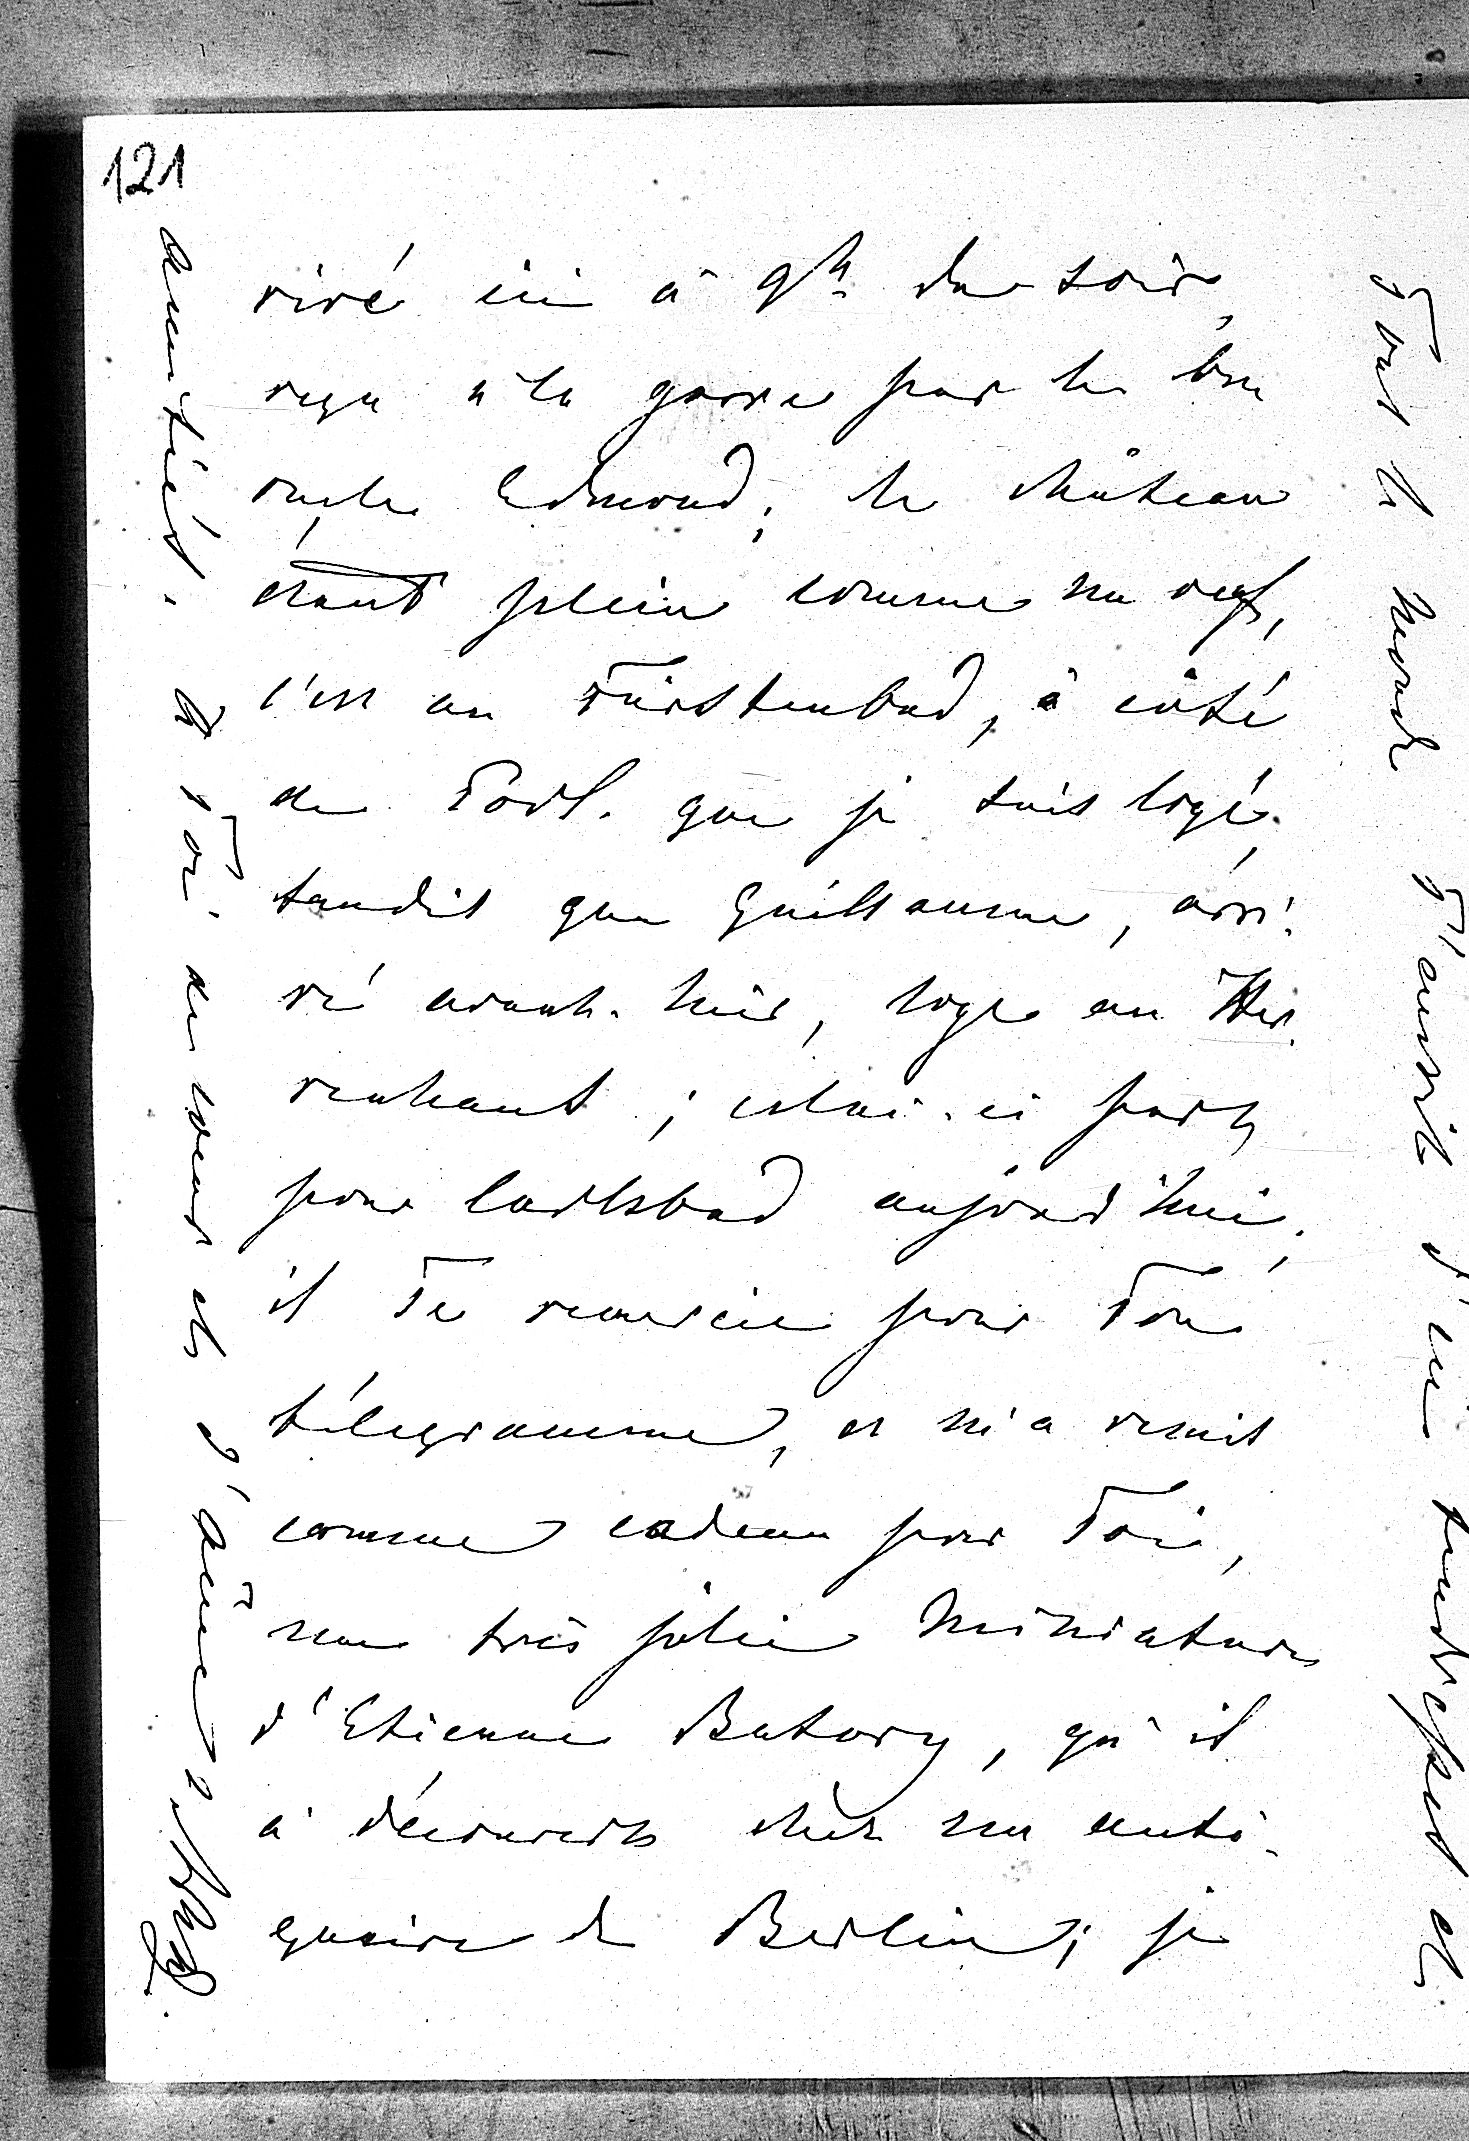 121
rivé ici à 9h du soir,
reçu à la garre par le bon
oncle Edmond; le château
étant plein comme un œuf,
c'est au Fürstenbad, à côté
de Podl. que je suis logé,
tandis que Guillaume, arri-
vé avant-hier, loge au Her-
renhaus; celui-ci part
pour Carlsbad aujourd'hui;
il Te remercie pour Ton
télegramme, et m'a remis
comme cadeau pour Toi,
une très jolie Miniature
d'Etienne Batory, qu'il
a découverts chez un anti-
quaire de Berlin; je
Tout le monde T'envoie d'ici tendresses et
amitiés. à Toi de cœur et d'âme,